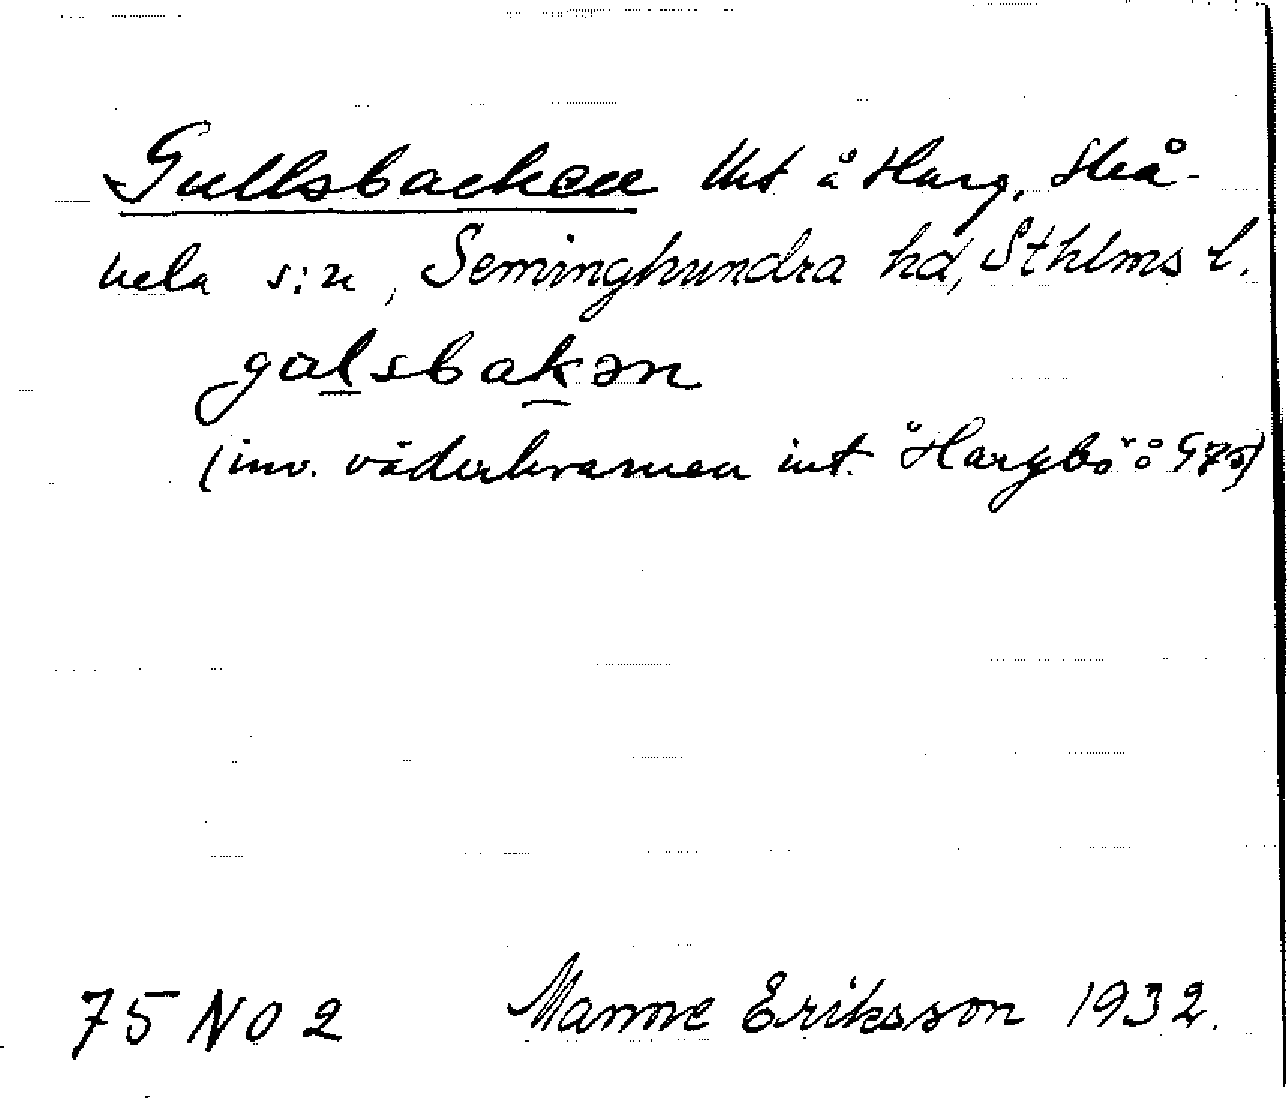 Gullsbacken lht å Harg, Skå-
nela s:n, Seminghundra hd, Sthlms l.
galsbakən
(inv. väderkvarnen int. "Hargbo" å G75)
75 NO 2 Manne Eriksson 1932.